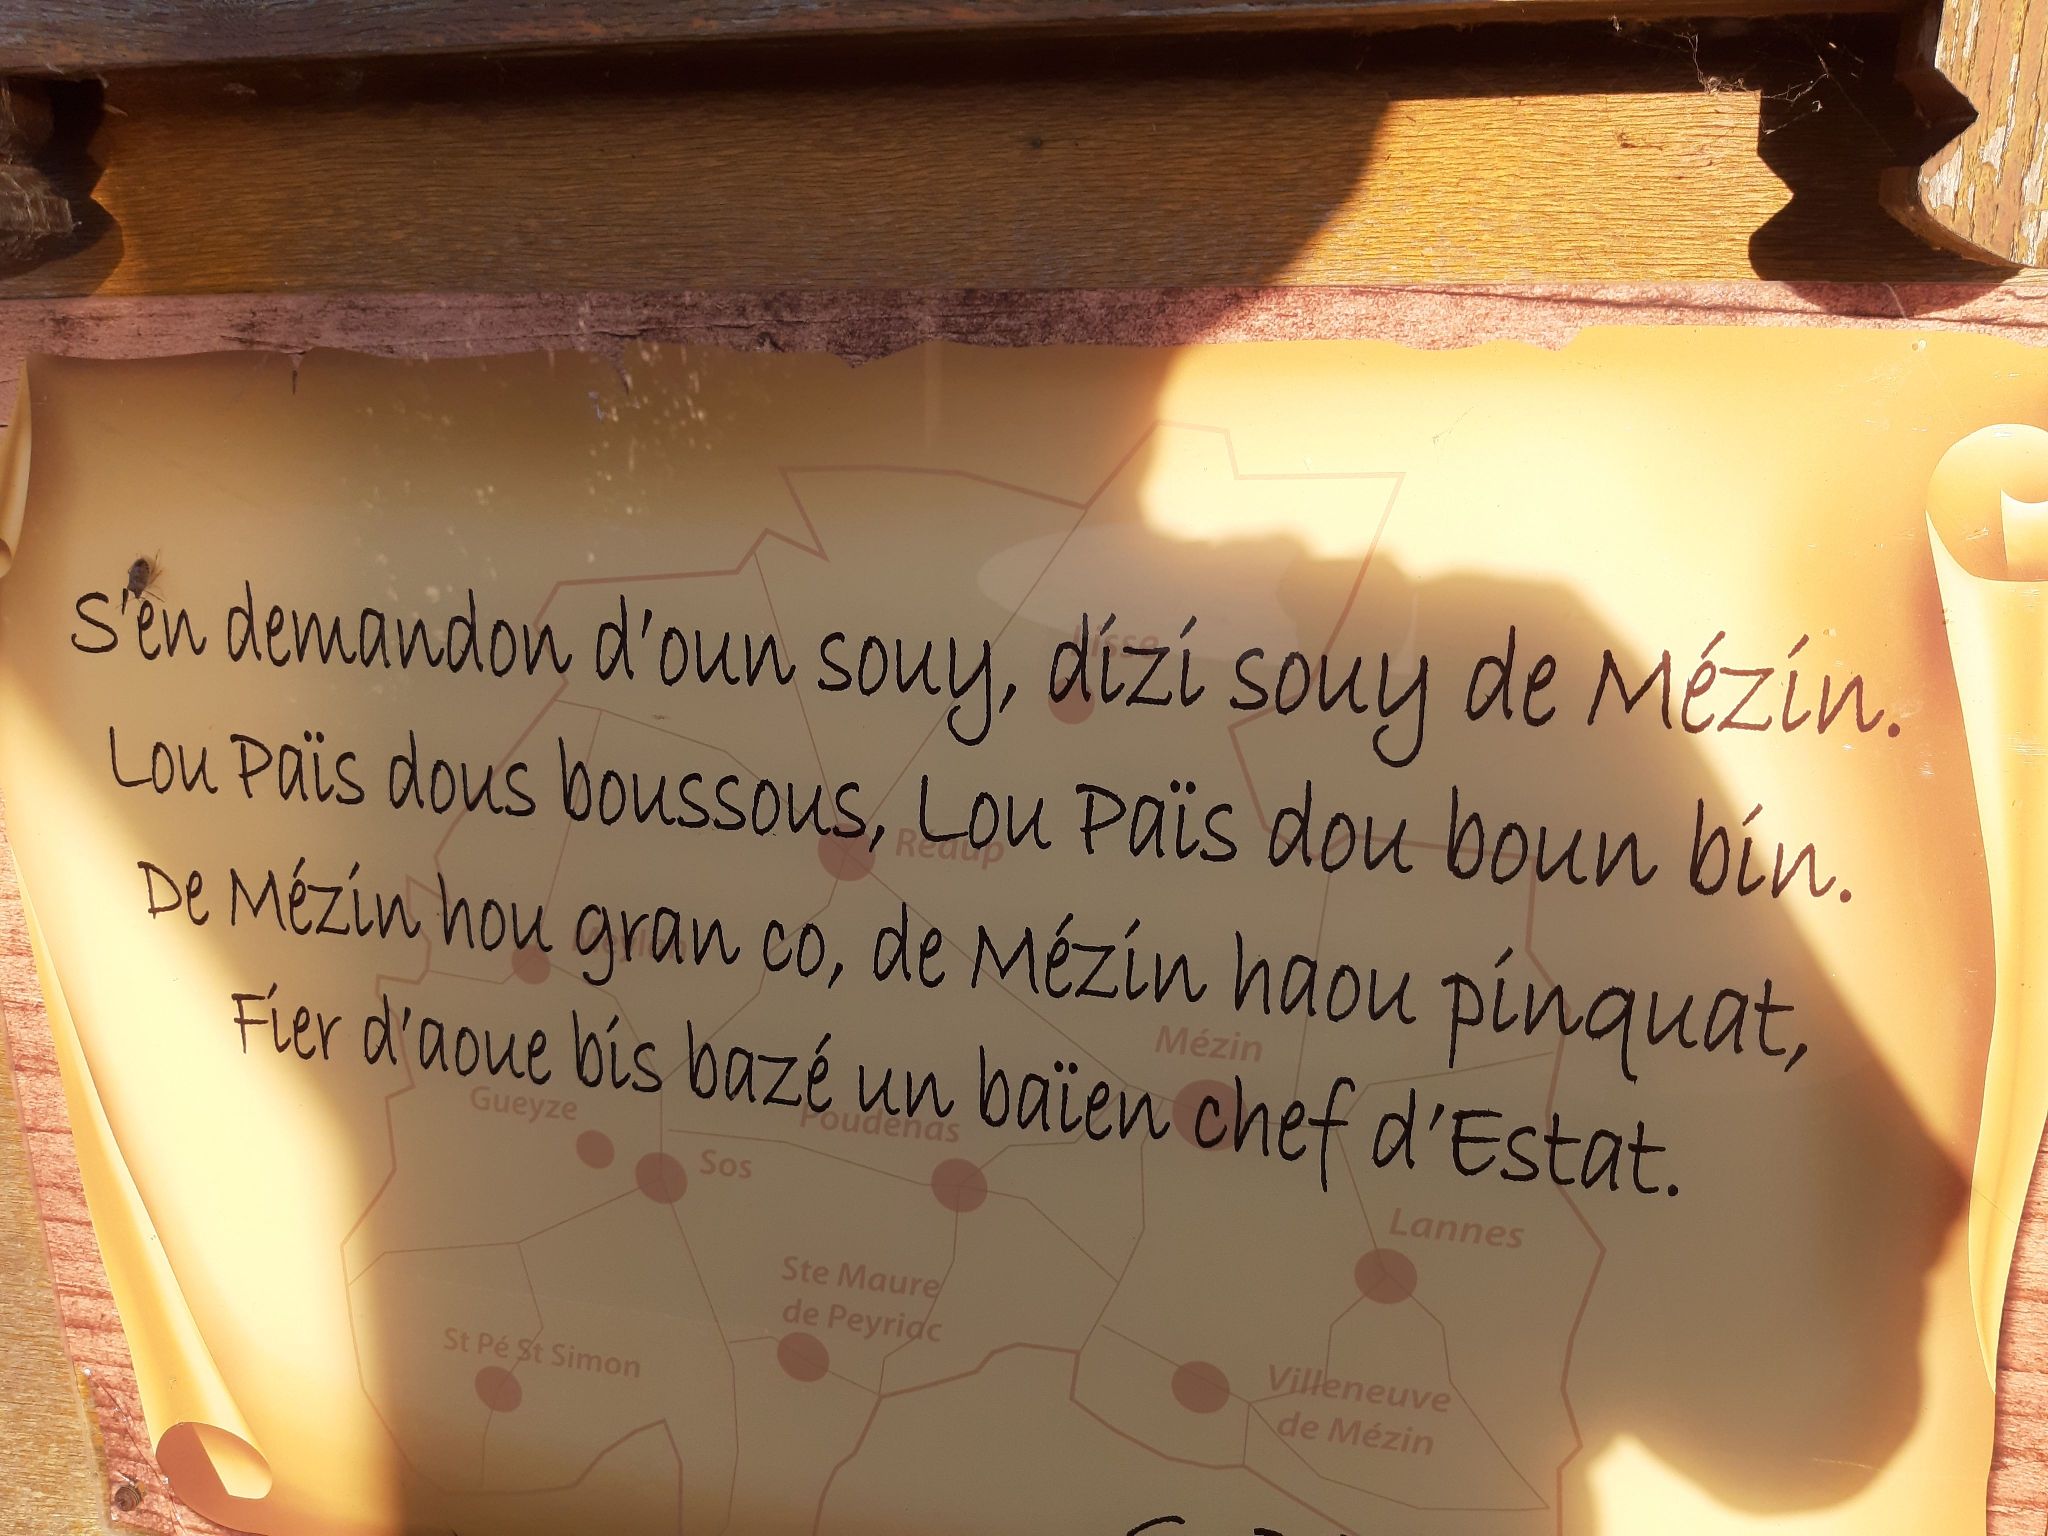 S'en demandon d'oun souy, dízí souy de Mézín.
Lou Païs dous boussous, Lou Païs dou boun bín.
De Mézín hou gran co, de Mézín haou pínquat,
Fíer d'aoue bís bazé un baïen chef d'Estat.
Réaup
Mézin
Gueyze
Poudenas
Sos
Lannes
Ste Maure
de Peyriac
St Pé St Simon
Villeneuve
de Mézin